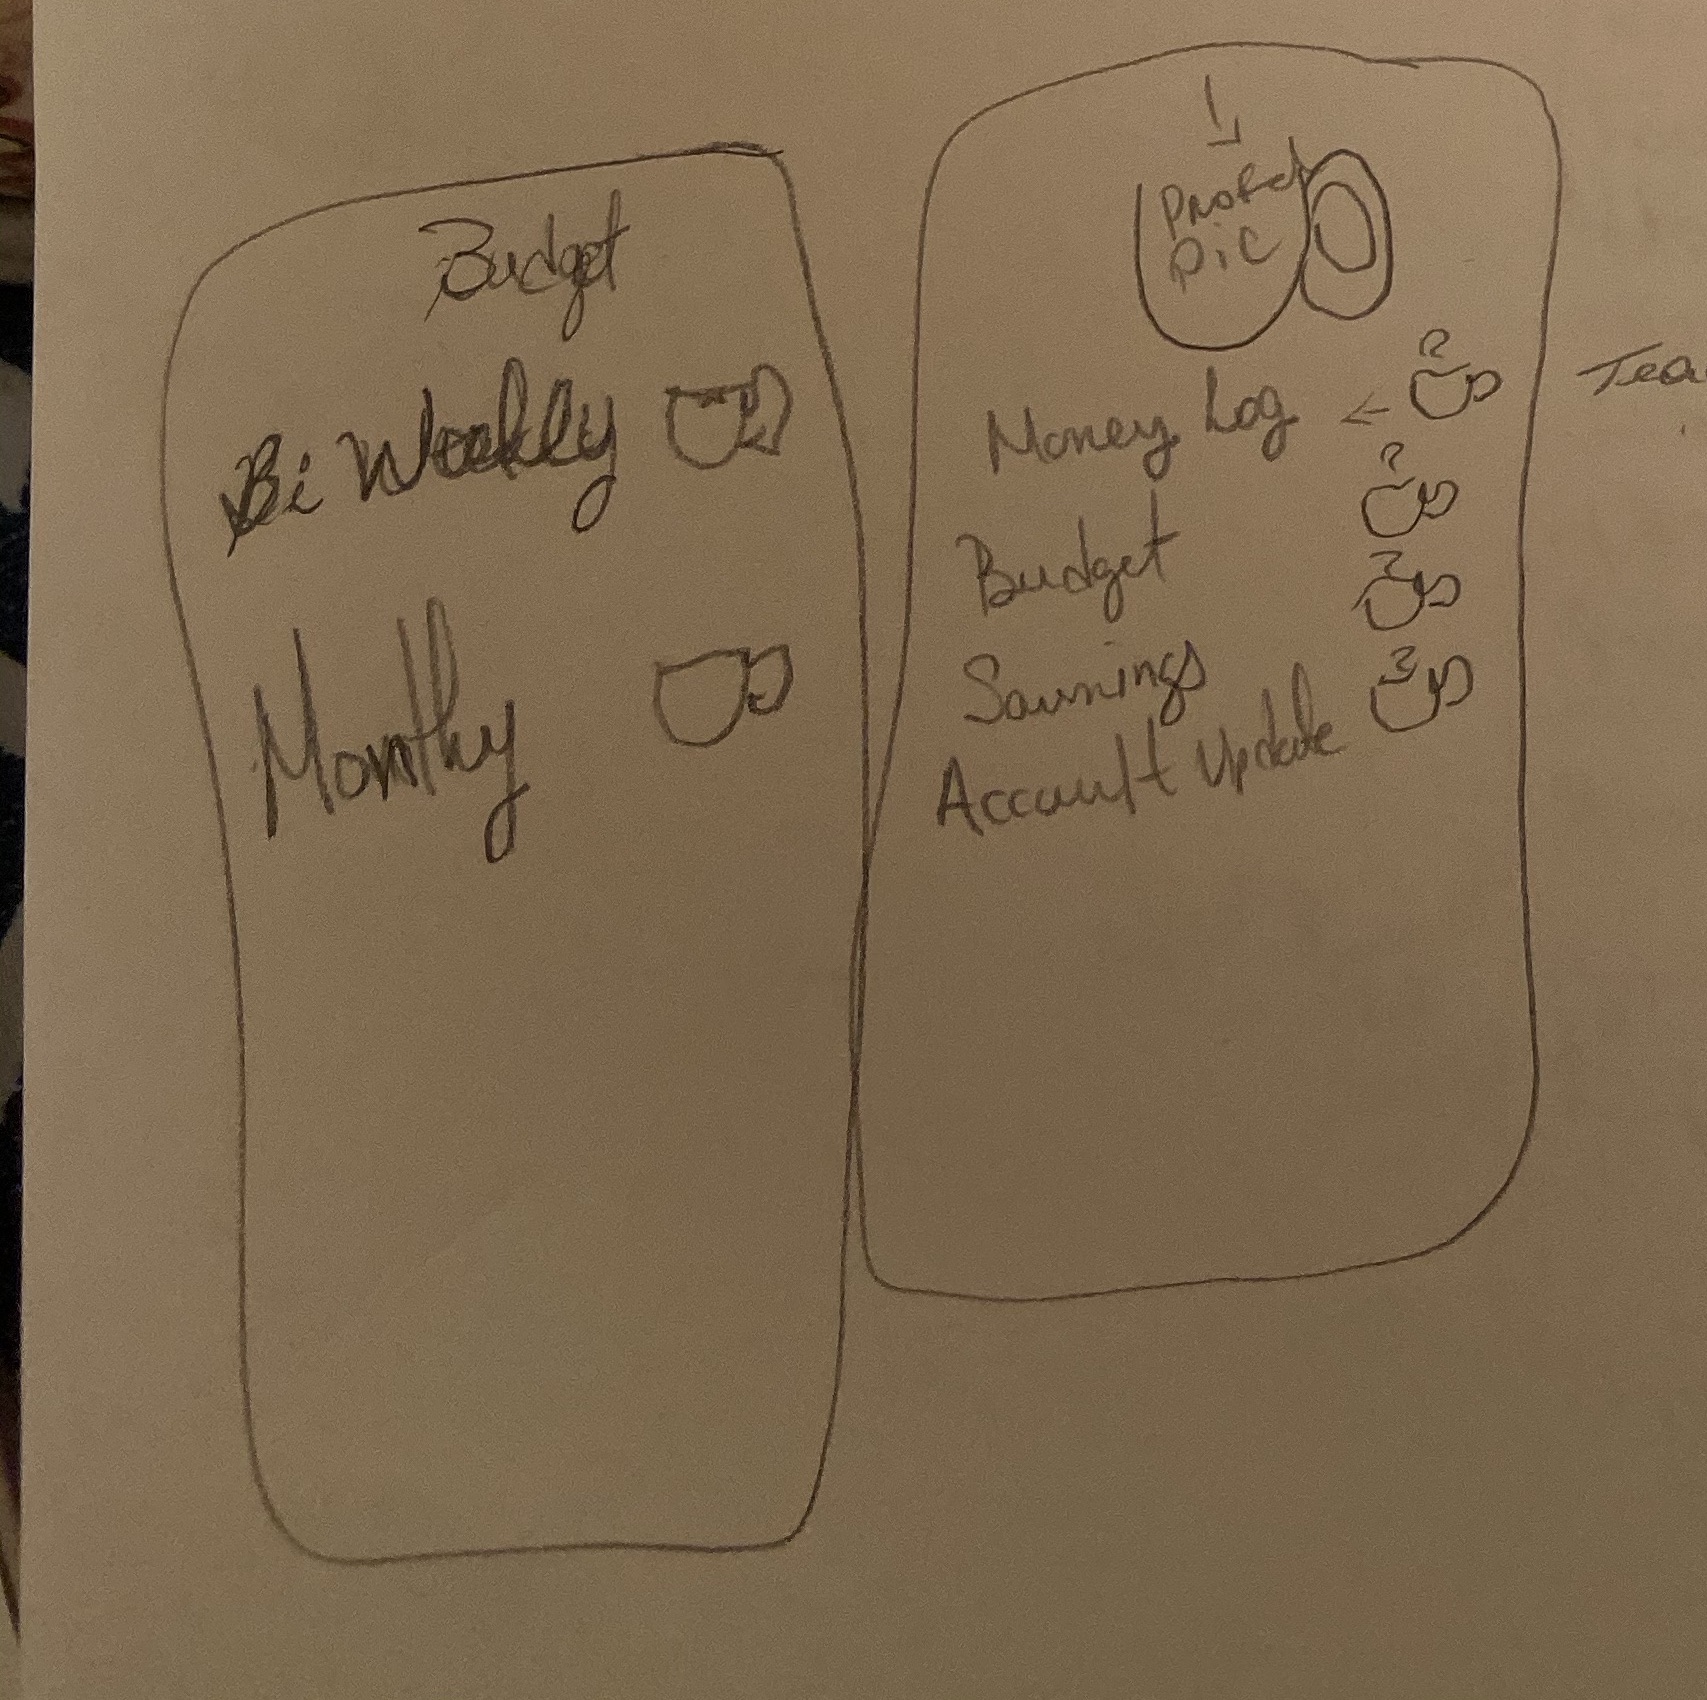 Budget
Bi Weekly
Monthly
Pic
Money Log
Budget
Savnings
Account Update
Tea